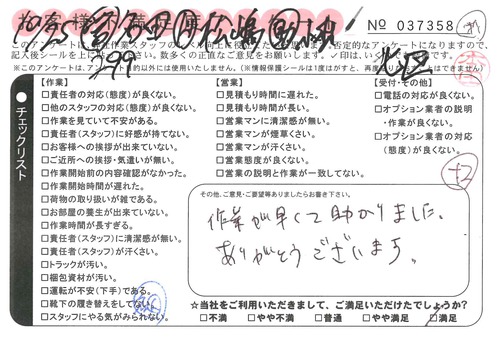 お客様
No 037358
北区
チェックリスト
【作業】
□責任者の対応(態度)が良くない。
□他のスタッフの対応(態度)が良くない。
□作業を見ていて不安がある。
□責任者(スタッフ)に好感が持てない。
□お客様への挨拶が出来ていない。
□ご近所への挨拶・気遣いが無い。
□作業開始前の内容確認がなかった。
□作業開始時間が遅れた。
□荷物の取り扱いが雑である。
□お部屋の養生が出来ていない。
□作業時間が長すぎる。
□責任者(スタッフ)に清潔感が無い。
□責任者(スタッフ)が汗くさい。
□トラックが汚い。
□梱包資材が汚い。
□運転が不安(下手)である。
□靴下の履き替えをしてない。
□スタッフにやる気がみられない。
【営業】
□見積もり時間に遅れた。
□見積もり時間が長い。
□営業マンに清潔感が無い。
□営業マンが煙草くさい。
□営業マンが汗くさい。
□営業態度が良くない。
□営業の説明と作業が一致してない。
【受付・その他】
□電話の対応が良くない。
□オプション業者の説明
・作業が良くない。
□オプション業者の対応
(態度)が良くない。
+2
その他、ご意見・ご要望等ありましたらお書き下さい。
作業が早くて助かりました。
ありがとうございます。
☆当社をご利用いただきまして、ご満足いただけたでしょうか?
□不満 □やや不満 □普通 □やや満足 □満足